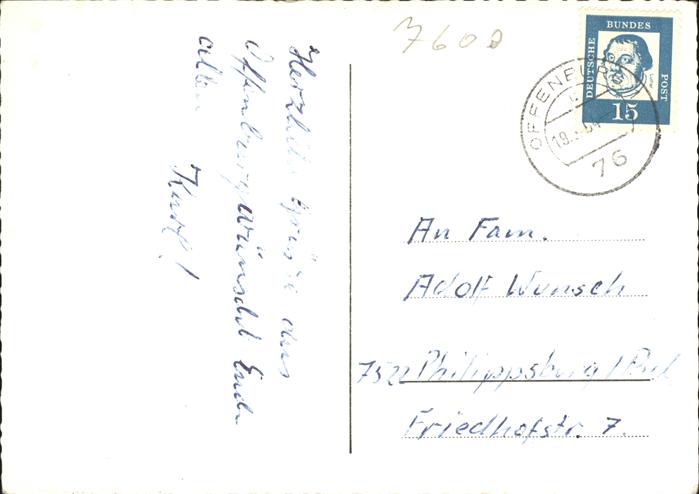 7600
BUNDES
DEUTSCHE
POST
15
OFFENBURG
76
Herzliche Grüße aus
Offenburg wünscht Euch
allen
Kurt!
An Fam.
Adolf Wunsch
7522 Philippsburg /
Friedhofstr. 7.